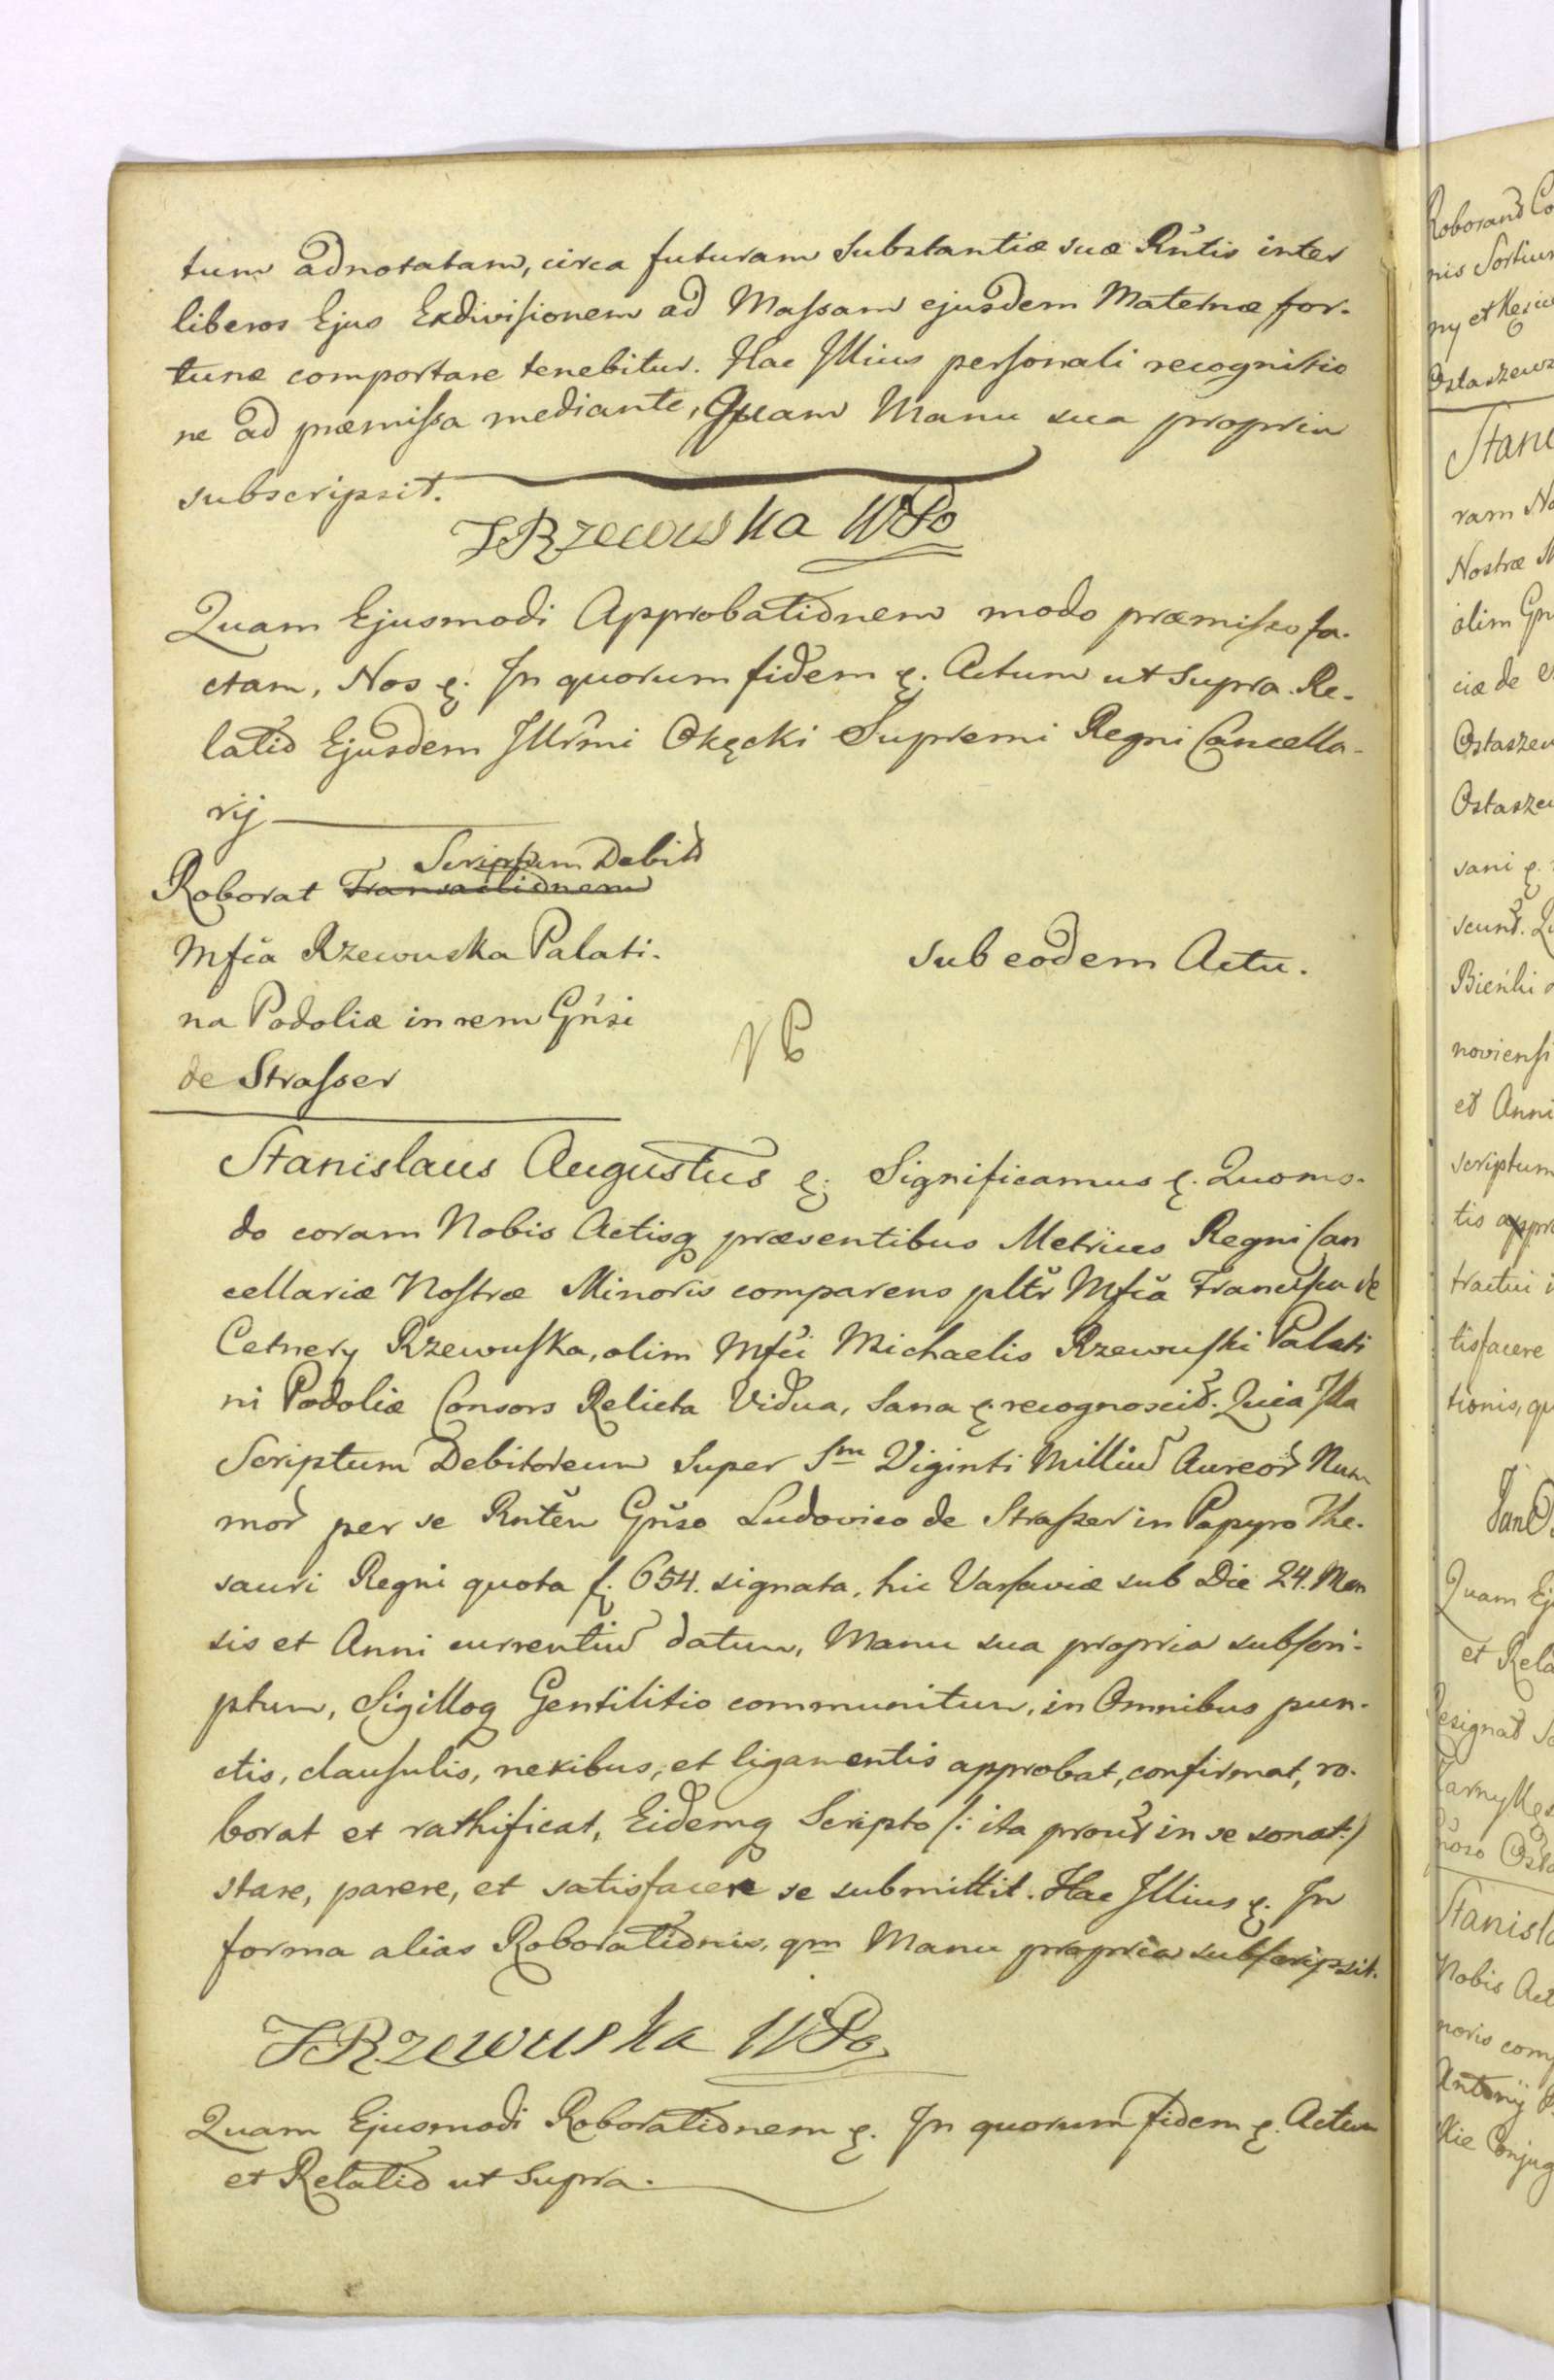 tum adnotatam, circa futuram Substantiæ suæ Rñtis inter
liberos Ejus Exdivisionem ad Massam ejusdem Maternæ for-
tunæ comportare tenebitur. Hac Illius personali recognitio
ne ad præmissa mediante, Quam Manu sua propria
subscripsit.
FRzewuska WPo
Quam Ejusmodi Approbationem modo præmisso fa-
ctam, Nos &. In quorum fidem &. Actum ut Supra. Re-
latio Ejusdem Illrmi Okęcki Supremi Regni Cancella-
rij
Scriptum Debiti
Roborat Transactionem
Mfca Rzewuska Palati-
na Podoliæ in rem Gñsi
de Strasser
sub eodem Actu.
Stanislaus Augustus &. Significamus &. Quomo-
do coram Nobis Actisq præsentibus Metrices Regni Can
cellariæ Nostræ Minoris comparens pltr Mfca Francisca de
Cetnery Rzewuska, olim Mfci Michaelis Rzewuski Palati
ni Podoliæ Consors Relicta Vidua, Sana & recognoscit. Quia Illa
Scriptum Debitoreum Super Sm Viginti Milliu Aureor Num
mor per se Rnten Gñso Ludovico de Strasser in Papyro The-
sauri Regni quota f. 654. signata, hic Varsaviæ sub Die 24. Men
sis et Anni currentiu datum, Manu sua propria subscri-
ptum, Sigilloq Gentilitio communitum, in Omnibus pun-
ctis, clausulis, nexibus, et ligamentis approbat, confirmat, ro-
borat et rathificat, Eidemq Scripto /: ita prout in se sonat:/
stare, parere, et satisfacere se submittit. Hac Illius &. In
forma alias Roborationis, qm Manu propria subscripsit.
FRzewuska WPo
Quam Ejusmodi Roborationem &. In quorum fidem &. Actum
et Relatio ut Supra.
Roborand Co
nis
Ostaszews
Stani
ram No
Nostræ M
olim Gn
ciæ de
Ostaszew
Ostaszew
sani &.
scund. Q
Bieńki
noviensi
et Anni
scriptum
tis appro
tractui i
tisfacere
tionis, qu
Jan O
Quam Ej
et Rela
Resignat
Stanisla
Nobis Act
noris com
Antonij
Conjug